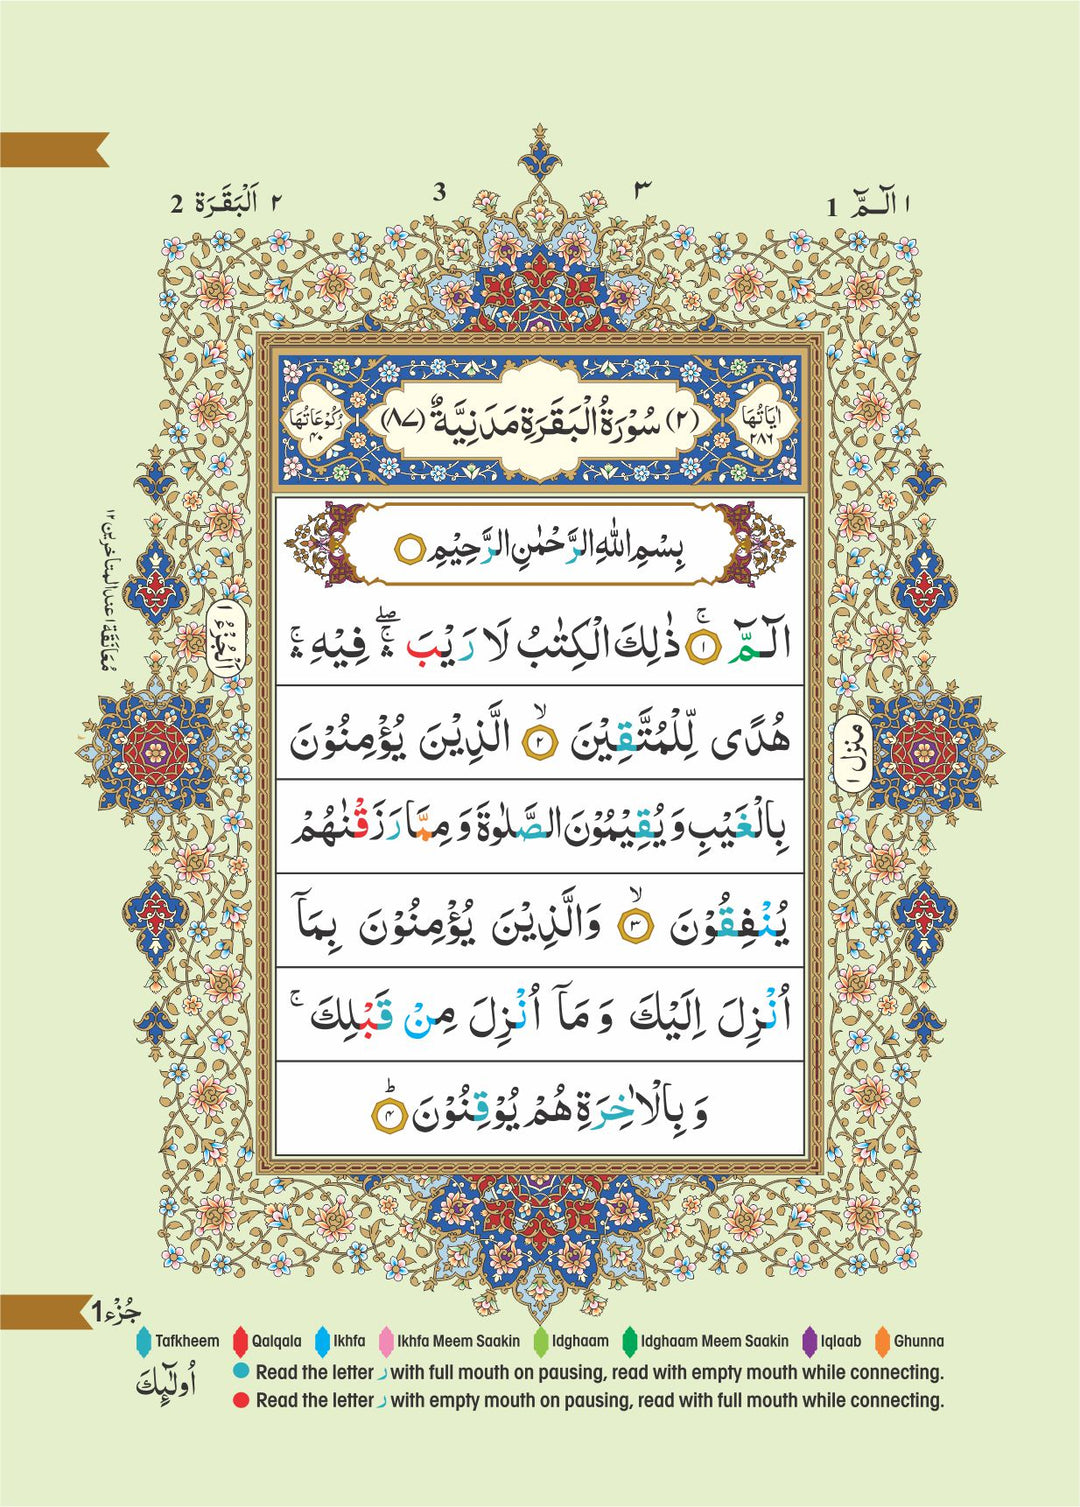 2 اَلْبَقَرَة ٢
3 ٣
1 الٓـمّٓ ١
اٰيَاتُهَا ٢٨٦
(٢) سُوْرَةُ الْبَقَرَةِ مَدَنِيَّةٌ (٨٧)
رُكُوْعَاتُهَا ٤٠
بِسْمِ اللّٰهِ الرَّحْمٰنِ الرَّحِيْمِ
الٓـمّٓ ۚ ١ ذٰلِكَ الْكِتٰبُ لَا رَيْبَ ۛۖ فِيْهِ ۛۚ
هُدًى لِّلْمُتَّقِيْنَ ۙ ٢ الَّذِيْنَ يُؤْمِنُوْنَ
بِالْغَيْبِ وَ يُقِيْمُوْنَ الصَّلٰوةَ وَ مِمَّا رَزَقْنٰهُمْ
يُنْفِقُوْنَ ۙ ٣ وَالَّذِيْنَ يُؤْمِنُوْنَ بِمَآ
اُنْزِلَ اِلَيْكَ وَ مَآ اُنْزِلَ مِنْ قَبْلِكَ ۚ
وَ بِالْاٰخِرَةِ هُمْ يُوْقِنُوْنَ ؕ ٤
مُعَانَقَة ١ عند المتاخرين ١٢
اَلْجُزْءُ ١
منزل ١
1 جُزْء
Tafkheem Qalqala Ikhfa Ikhfa Meem Saakin Idghaam Idghaam Meem Saakin Iqlaab Ghunna
اُولٰٓئِكَ
Read the letter ر with full mouth on pausing, read with empty mouth while connecting.
Read the letter ر with empty mouth on pausing, read with full mouth while connecting.